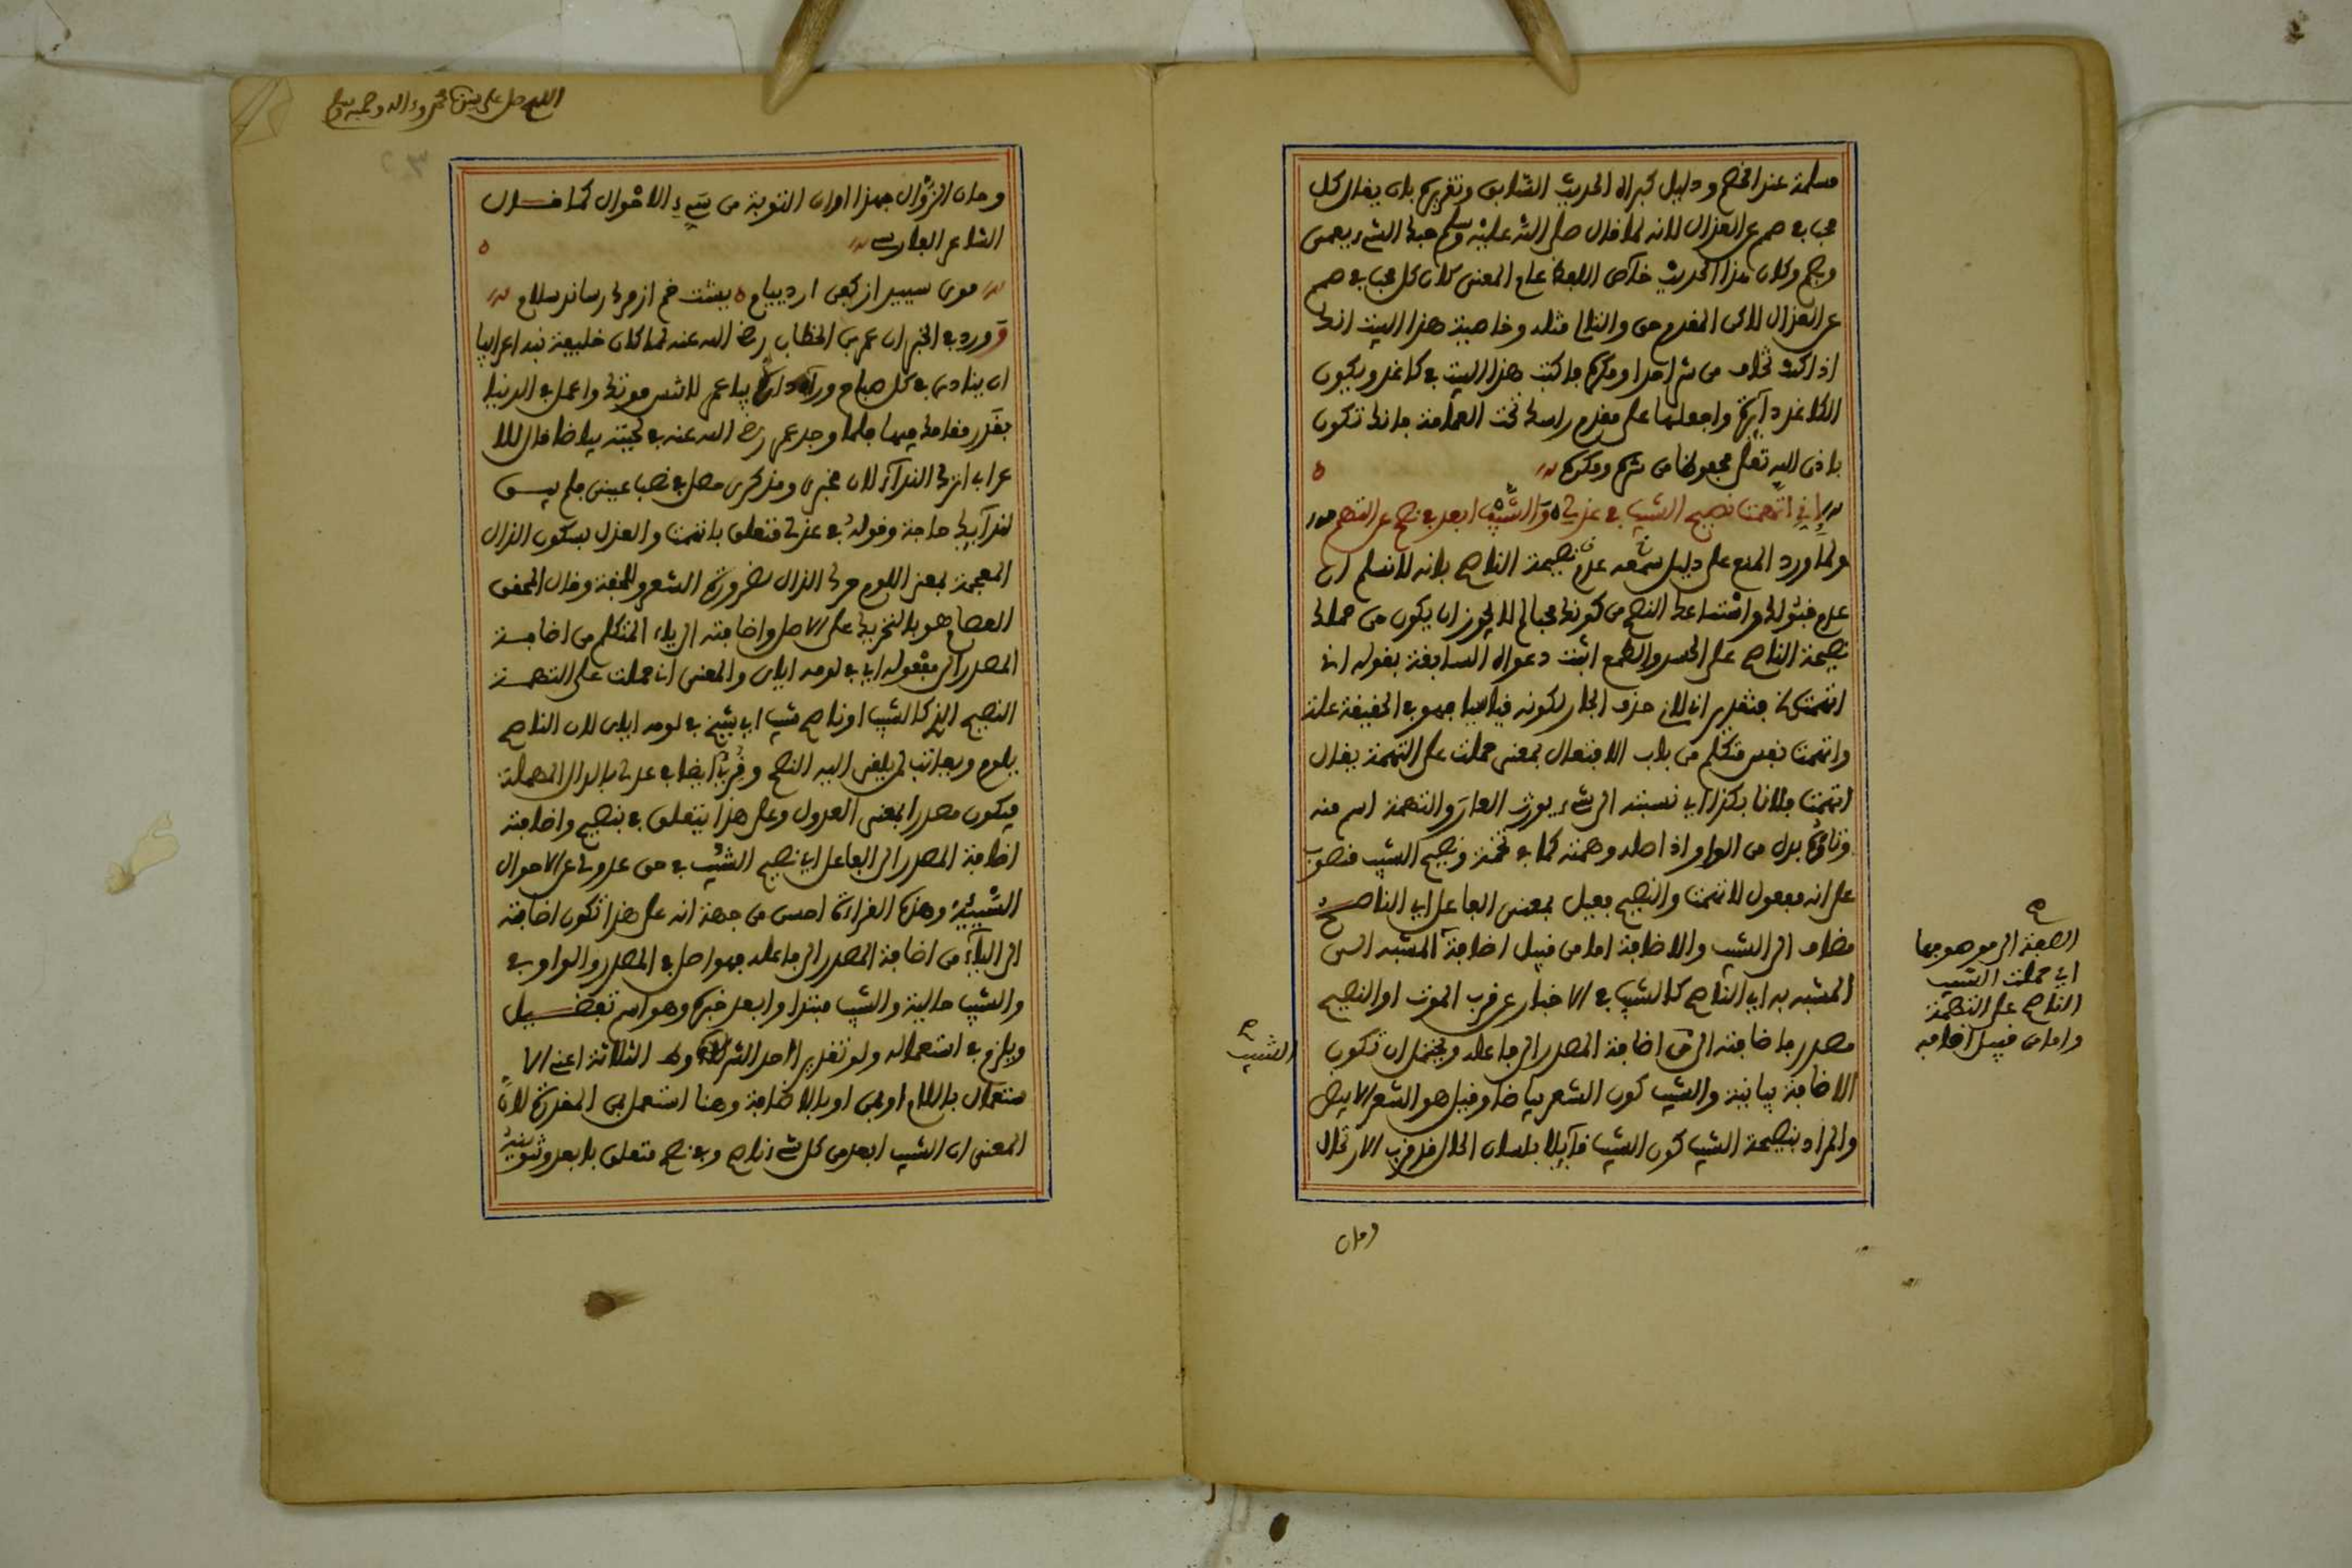 مسلمة عند الخصم ودليل كبراه الحديث السابق وتقريره بان يقال كل
محب في صمم عن العذال لانه لما قال صلى الله عليه وسلم حبك الشيء يعمى
ويصم وكان هذا الحديث خاص اللفظ عام المعنى كان كل محب في صمم
عن العذال لاكن المقدم حق والتالى مثله وخاصية هذا البيت انك
اذا كنت تخاف من شر احد او مكره فاكتب هذا البيت في كاغد ويكون
الكاغد دآيرة واجعلها على مقدم راسك تحت العمامة فانك تكون
باذن الله تعلى محفوظا من شره ومكره
إني اتهمت نصيح الشيب في عذلي والشيب ابعد في نصح عن التهم
ولما ورد المنع على دليل سمعه عدم نصيحة الناصح بانه لا نسلم ان
عدم قبولك وامتناعك النصح من كونك محبا لم لا يجوز ان يكون من حملك
نصيحة الناصح على الحسد والطمع اثبت دعواه السابقة بقوله انى
اتهمت بتقدير انى لانى حذف الجار لكونه قياسيا فهو في الحقيقة علة
واتهمت نفس متكلم من باب الافتعال بمعنى حملت على التهمة يقال
اتهمت فلانا بكذا اي نسبته الى شيء يورث العار والتهمة اسم منه
وتاؤه بدل من الواو اذ اصله وهمة كما في تخمة ونصيح الشيب منصوب
على انه مفعول لاتهمت والنصيح فعيل بمعنى الفاعل اي الناصح
مضاف الى الشيب والاضافة اما من قبيل اضافة المشبه الى
المشبه به اي الناصح كالشيب في الاخبار عن قرب الموت او النصيح
مصدر فاضافته الى من اضافة المصدر الى فاعله ويحتمل ان تكون
الاضافة بيانية والشيب كون الشعر بياضا وقيل هو الشعر الابيض
والمراد بنصيحة الشيب كون الشيب قآيلا بلسان الحال قد قرب الارتحال
وحان
الصفة الى موصوفها
اي حملت الشيب
الناصح على التهمة
واما من قبيل اضافة
الشيب
اللهم صل على سيدنا محمد وءاله وصحبه وسلم
وحان الزوال فهذا اوان التوبة من سيء الاحوال كما قال
الشاعر الفارسى
موى سپيد از كفن ارد پيام پشت خم از مرگ رساند سلام
وورد في الخبر ان عمر بن الخطاب رضى الله عنه لما كان خليفة نبه اعرابيا
ان ينادى في كل صباح ورآء داره يا عمر لا تنس موتك واعمل في الدنيا
بقدر مقامك فيها فلما وجد عمر رضى الله عنه في لحيته بياضا قال للا
عرابى اترك الندآء لان مخبرى ومذكرى حصل في نصب عينى فلم يبق
لندآيك حاجة وقوله في عذلى متعلق باتهمت والعذل بسكون الذال
المعجمة بمعنى اللوم حرك الذال لضرورة الشعر وللخفة وقال المحقق
العصام هو بالتحريك على الاصل واضافته الى ياء المتكلم من اضافة
المصدر الى مفعوله اي في لومه اياى والمعنى انى حملت على التهمة
النصيح الذى كالشيب او ناصح شيب اي شيخ في لومه اياى لان الناصح
يلوم ويعاتب لمن يلقى اليه النصح وقرئ ايضا في عدلى بالدال المهملة
فيكون مصدرا بمعنى العدول وعلى هذا يتعلق في بنصيح واضافته
اضافة المصدر الى الفاعل اي نصيح الشيب في حق عدولى عن الاحوال
الشيبية وهذه القراءة احسن من جهة انه على هذا تكون اضافته
الى اليآء من اضافة المصدر الى فاعله فهو اصل في المصدر والواو في
والشيب حالية والشيب مبتدا وابعد خبره وهو اسم تفضيل
ويلزم في استعماله ولو تقديرا احد الشروط الثلاثة اعنى الا
ستعمال باللام او بمن او بالاضافة وهنا استعمل بمن المقدرة لان
المعنى ان الشيب ابعد من كل شيء ناصح وفي نصح متعلق بابعد وتنوينه